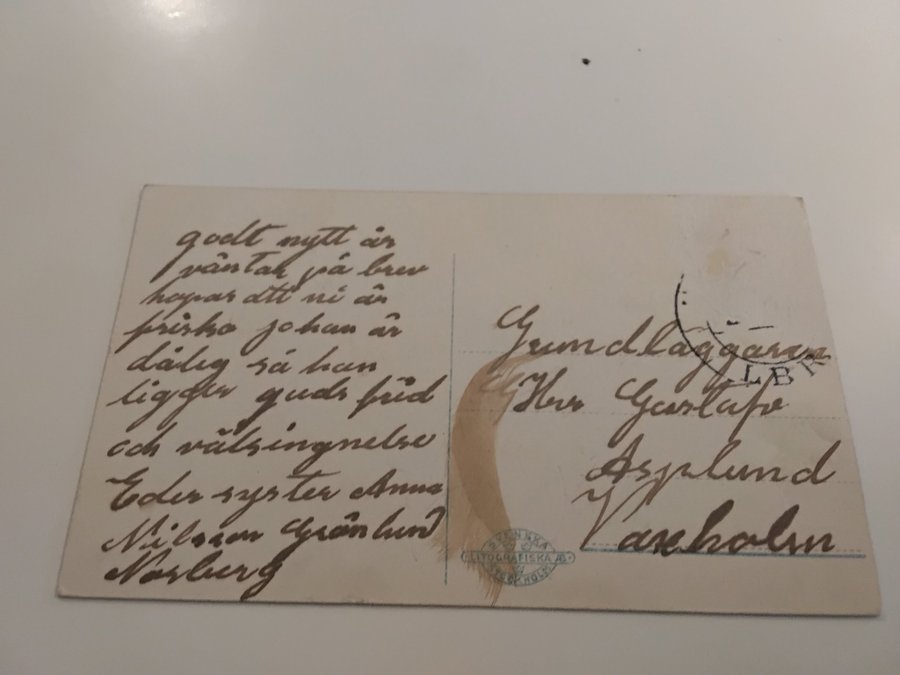 godt nytt år
väntar på brev
hopas att ni är
friska johan är
dålig så han
ligger guds frid
och välsingnelse
Eder syster Anna
Nilsson Grönlund
Norberg
Grundläggaren
Herr Gustaf
Asplund
Vaxholm
LBR
SVENSKA
LITOGRAFISKA AB
STOCKHOLM